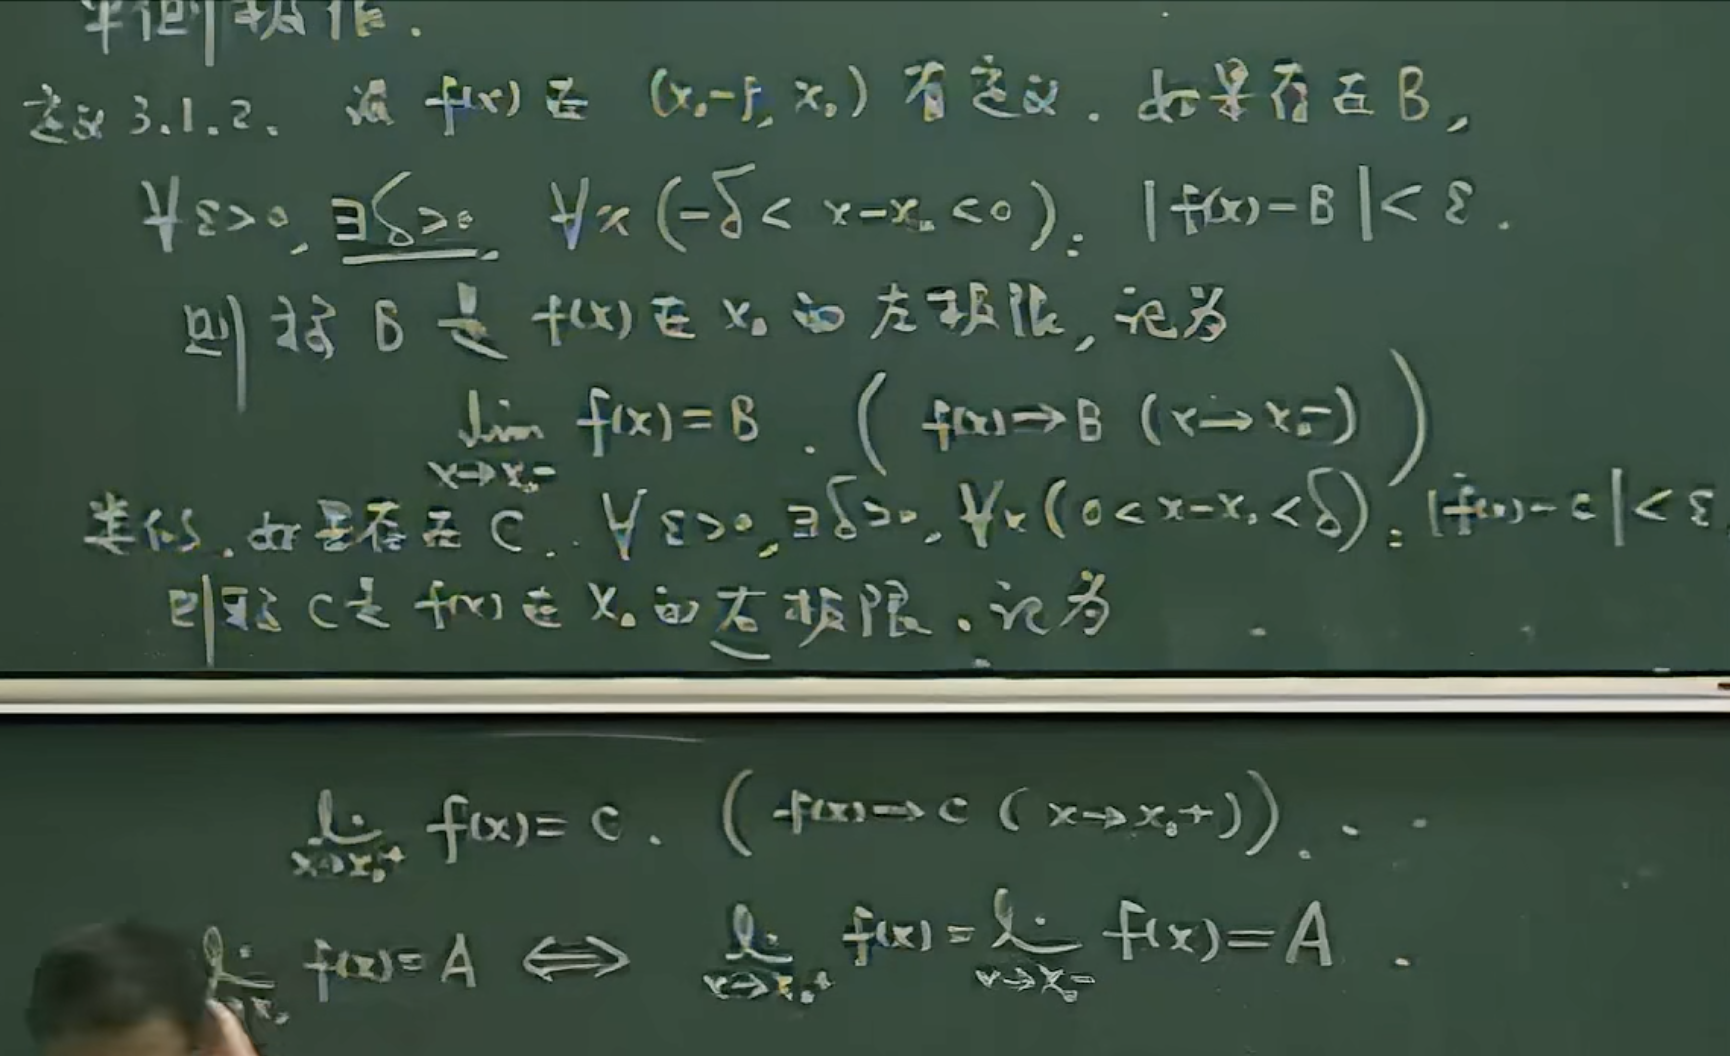 单侧极限.
定义3.1.2. 设 f(x) 在 (x₀-ρ, x₀) 有定义. 如果存在B,
∀ε>0, ∃δ>0 ∀x(-δ< x-x₀ <0): |f(x)-B|<ε.
则称 B 是 f(x) 在 x₀ 的左极限, 记为
lim f(x)=B. ( f(x)→B (x→x₀-) )
x→x₀-
类似, 如果存在 C. ∀ε>0, ∃δ>0, ∀x(0<x-x₀<δ): |f(x)-C|<ε
则称 C是 f(x) 在 x₀ 的右极限. 记为
lim f(x)=C. ( f(x)→C (x→x₀+)).
x→x₀+
lim f(x)=A ⇔ lim f(x)=lim f(x)=A.
x→x₀+ x→x₀-